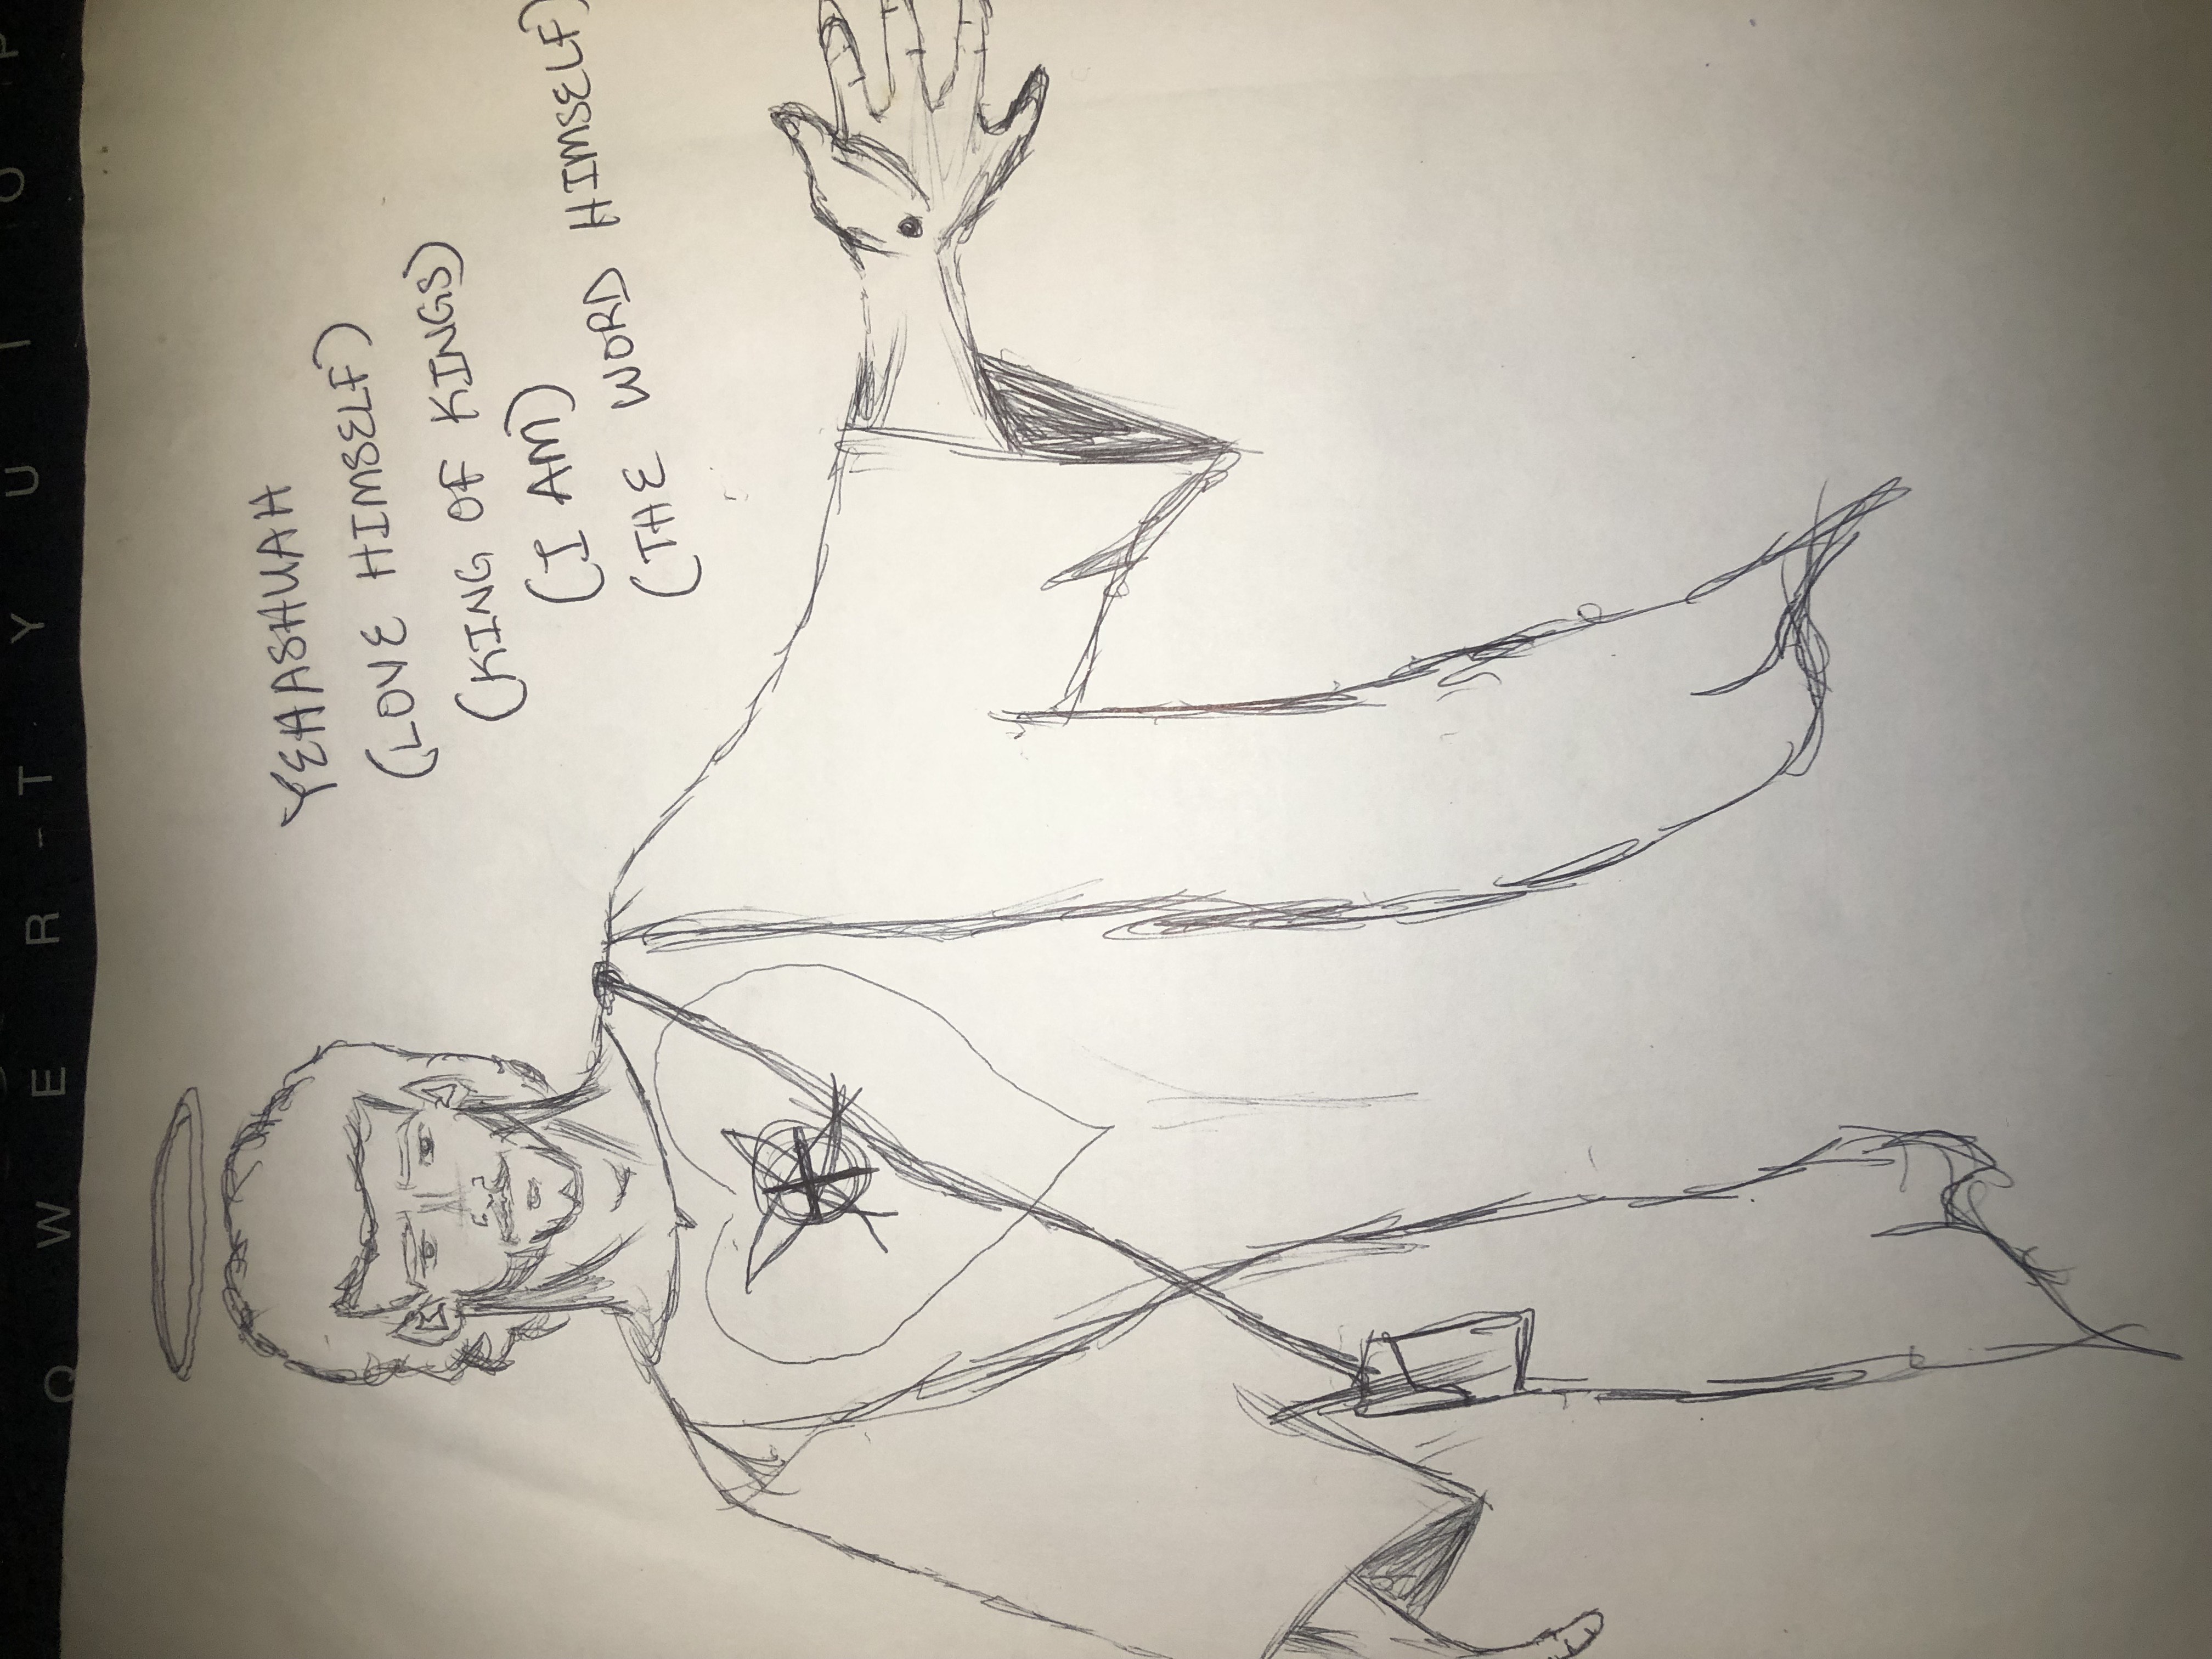 Q W E R - T Y U I O P
YEHASHUAH
(LOVE HIMSELF)
(KING OF KINGS)
(I AM)
(THE WORD HIMSELF)